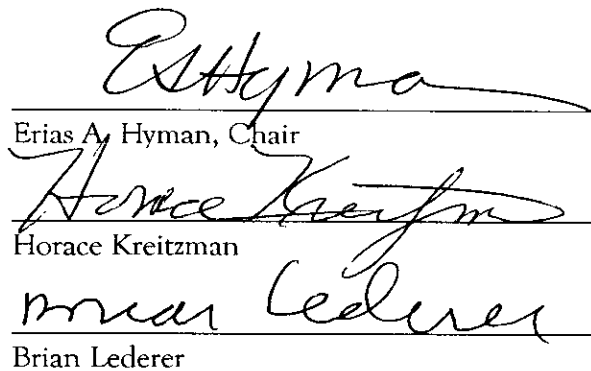 EAHyman
Erias A. Hyman, Chair
Horace Kreitzman
Horace Kreitzman
Brian Lederer
Brian Lederer